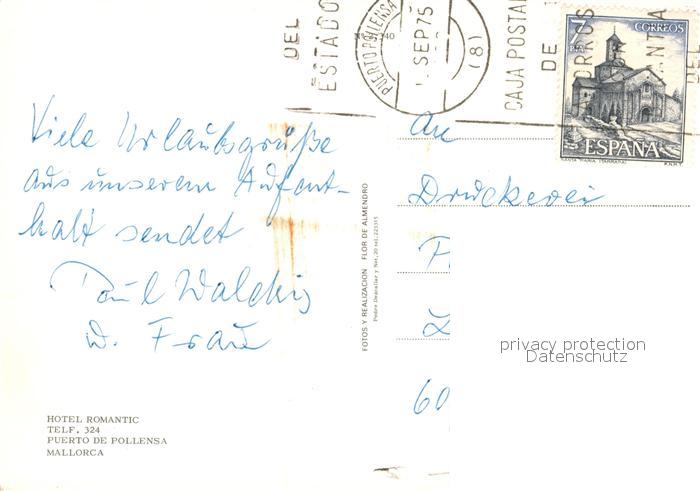 Viele Urlaubsgrüße
aus unserem Aufent-
halt sendet
Paul
u. Frau
HOTEL ROMANTIC
TELF. 324
PUERTO DE POLLENSA
MALLORCA
FOTOS Y REALIZACION FLOR DE ALMENDRO
DEL
ESTADO
PUERTO POLLENSA
SEP 75
(8)
CAJA POSTAL
DE
7
PTA
CORREOS
ESPAÑA
An
Druckerei
F
Z
60
privacy protection
Datenschutz